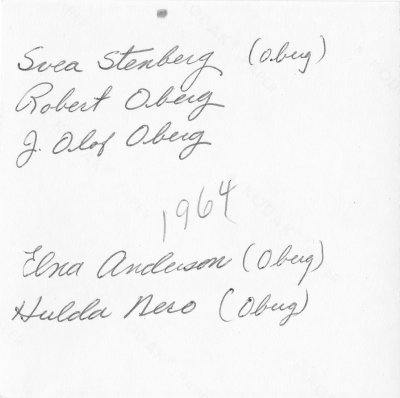 Svea Stenberg (Oberg)
Robert Oberg
J. Olof Oberg
1964
Elna Anderson (Oberg)
Hulda Nero (Oberg)